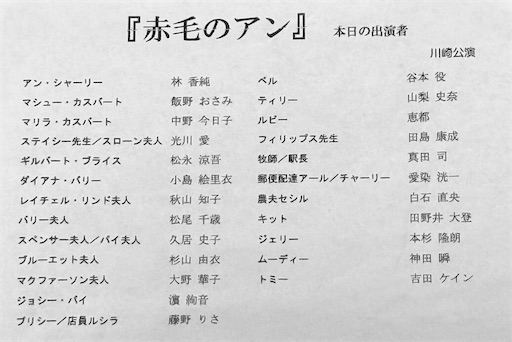 『赤毛のアン』 本日の出演者
川崎公演
アン・シャーリー 林 香純
マシュー・カスバート 飯野 おさみ
マリラ・カスバート 中野 今日子
ステイシー先生／スローン夫人 光川 愛
ギルバート・ブライス 松永 涼吾
ダイアナ・バリー 小島 絵里衣
レイチェル・リンド夫人 秋山 知子
バリー夫人 松尾 千歳
スペンサー夫人／パイ夫人 久居 史子
ブルーエット夫人 杉山 由衣
マクファーソン夫人 大野 華子
ジョシー・パイ 濵 絢音
プリシー／店員ルシラ 藤野 りさ
ベル 谷本 役
ティリー 山梨 史奈
ルビー 恵都
フィリップス先生 田島 康成
牧師／駅長 真田 司
郵便配達アール／チャーリー 愛染 洸一
農夫セシル 白石 直央
キット 田野井 大登
ジェリー 本杉 隆朗
ムーディー 神田 瞬
トミー 吉田 ケイン